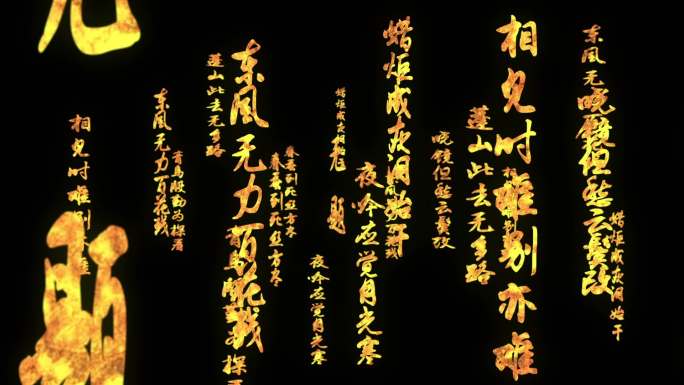 蜡炬成灰泪始干
东风无
晓镜但愁云鬓改
相见时难别亦难
蓬山此去无多路
晓镜但愁云鬓改
蜡炬成灰泪始干
夜吟应觉月光寒
蜡炬成灰
夜吟应觉月光寒
春蚕到死丝方尽
春蚕到死丝方尽
东风无力百花残
青鸟殷
探
蓬山此去无多路
青鸟殷勤为探看
东风无力百花残
相见时难别